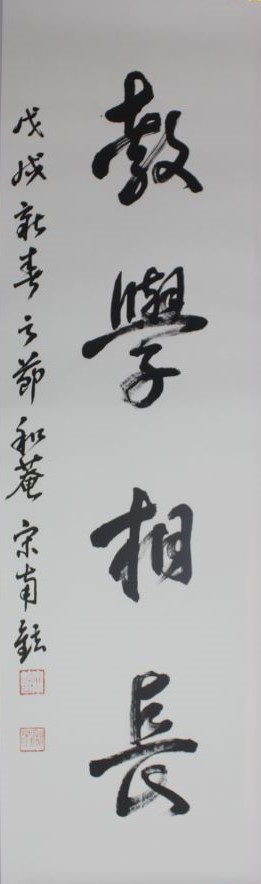 教學相長
戊戌新春之節和菴宗南鉉